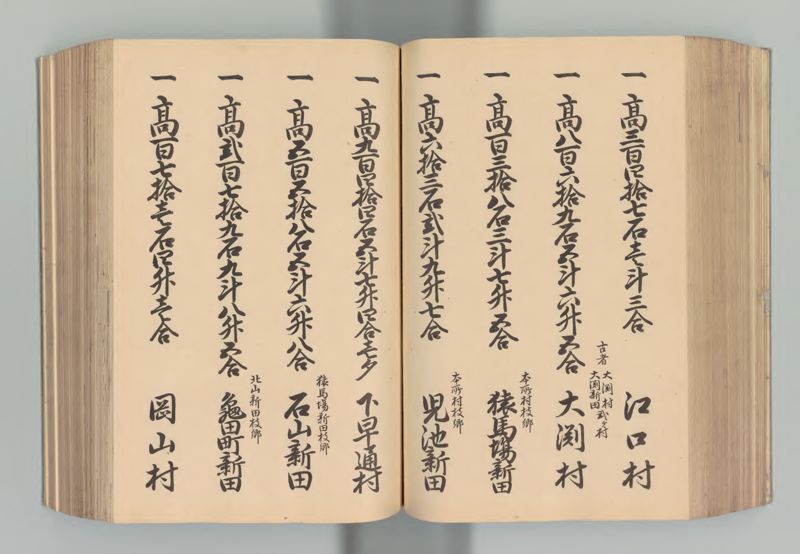 一 高三百四拾七石壱斗三合 江口村
古者 大渕村 大渕新田 弐ヶ村
一 高八百六拾九石五斗六升五合 大渕村
本所村枝郷
一 高百三拾八石三斗七升五合 猿馬場新田
本所村枝郷
一 高六拾三石弐斗九升七合 児池新田
一 高九百四拾四石五斗七升四合壱夕 下早通村
猿馬場新田枝郷
一 高五百五拾八石五斗六升八合 石山新田
北山新田枝郷
一 高弐百七拾九石九斗八升五合 亀田町新田
一 高百七拾壱石四升壱合 岡山村